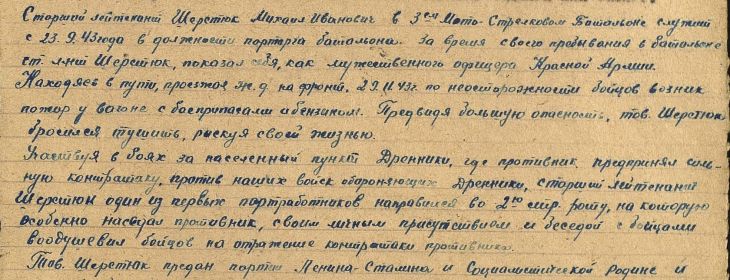 Старший лейтенант Шерстюк Михаил Иванович в 3ем Мото-Стрелковом Батальоне служит
с 23.9.43 года в должности парторга батальона. За время своего пребывания в батальоне
ст. л-нт Шерстюк, показал себя, как мужественного офицера Красной Армии.
Находясь в пути, проезжая ж.д. на фронт. 29.11.43г. по неосторожности бойцов возник
пожар у вагона с боеприпасами и бензином. Предвидя большую опасность, тов. Шерстюк
бросился тушить, рискуя своей жизнью.
Участвуя в боях за населенный пункт Дренники, где противник предпринял силь-
ную контратаку, против наших войск обороняющих Дренники, старший лейтенант
Шерстюк один из первых партработников направился во 2ую стр. роту, на которую
особенно наседал противник, своим личным присутствием и беседой с бойцами
воодушевил бойцов на отражение контратаки противника.
Тов. Шерстюк предан партии Ленина-Сталина и Социалистической Родине и